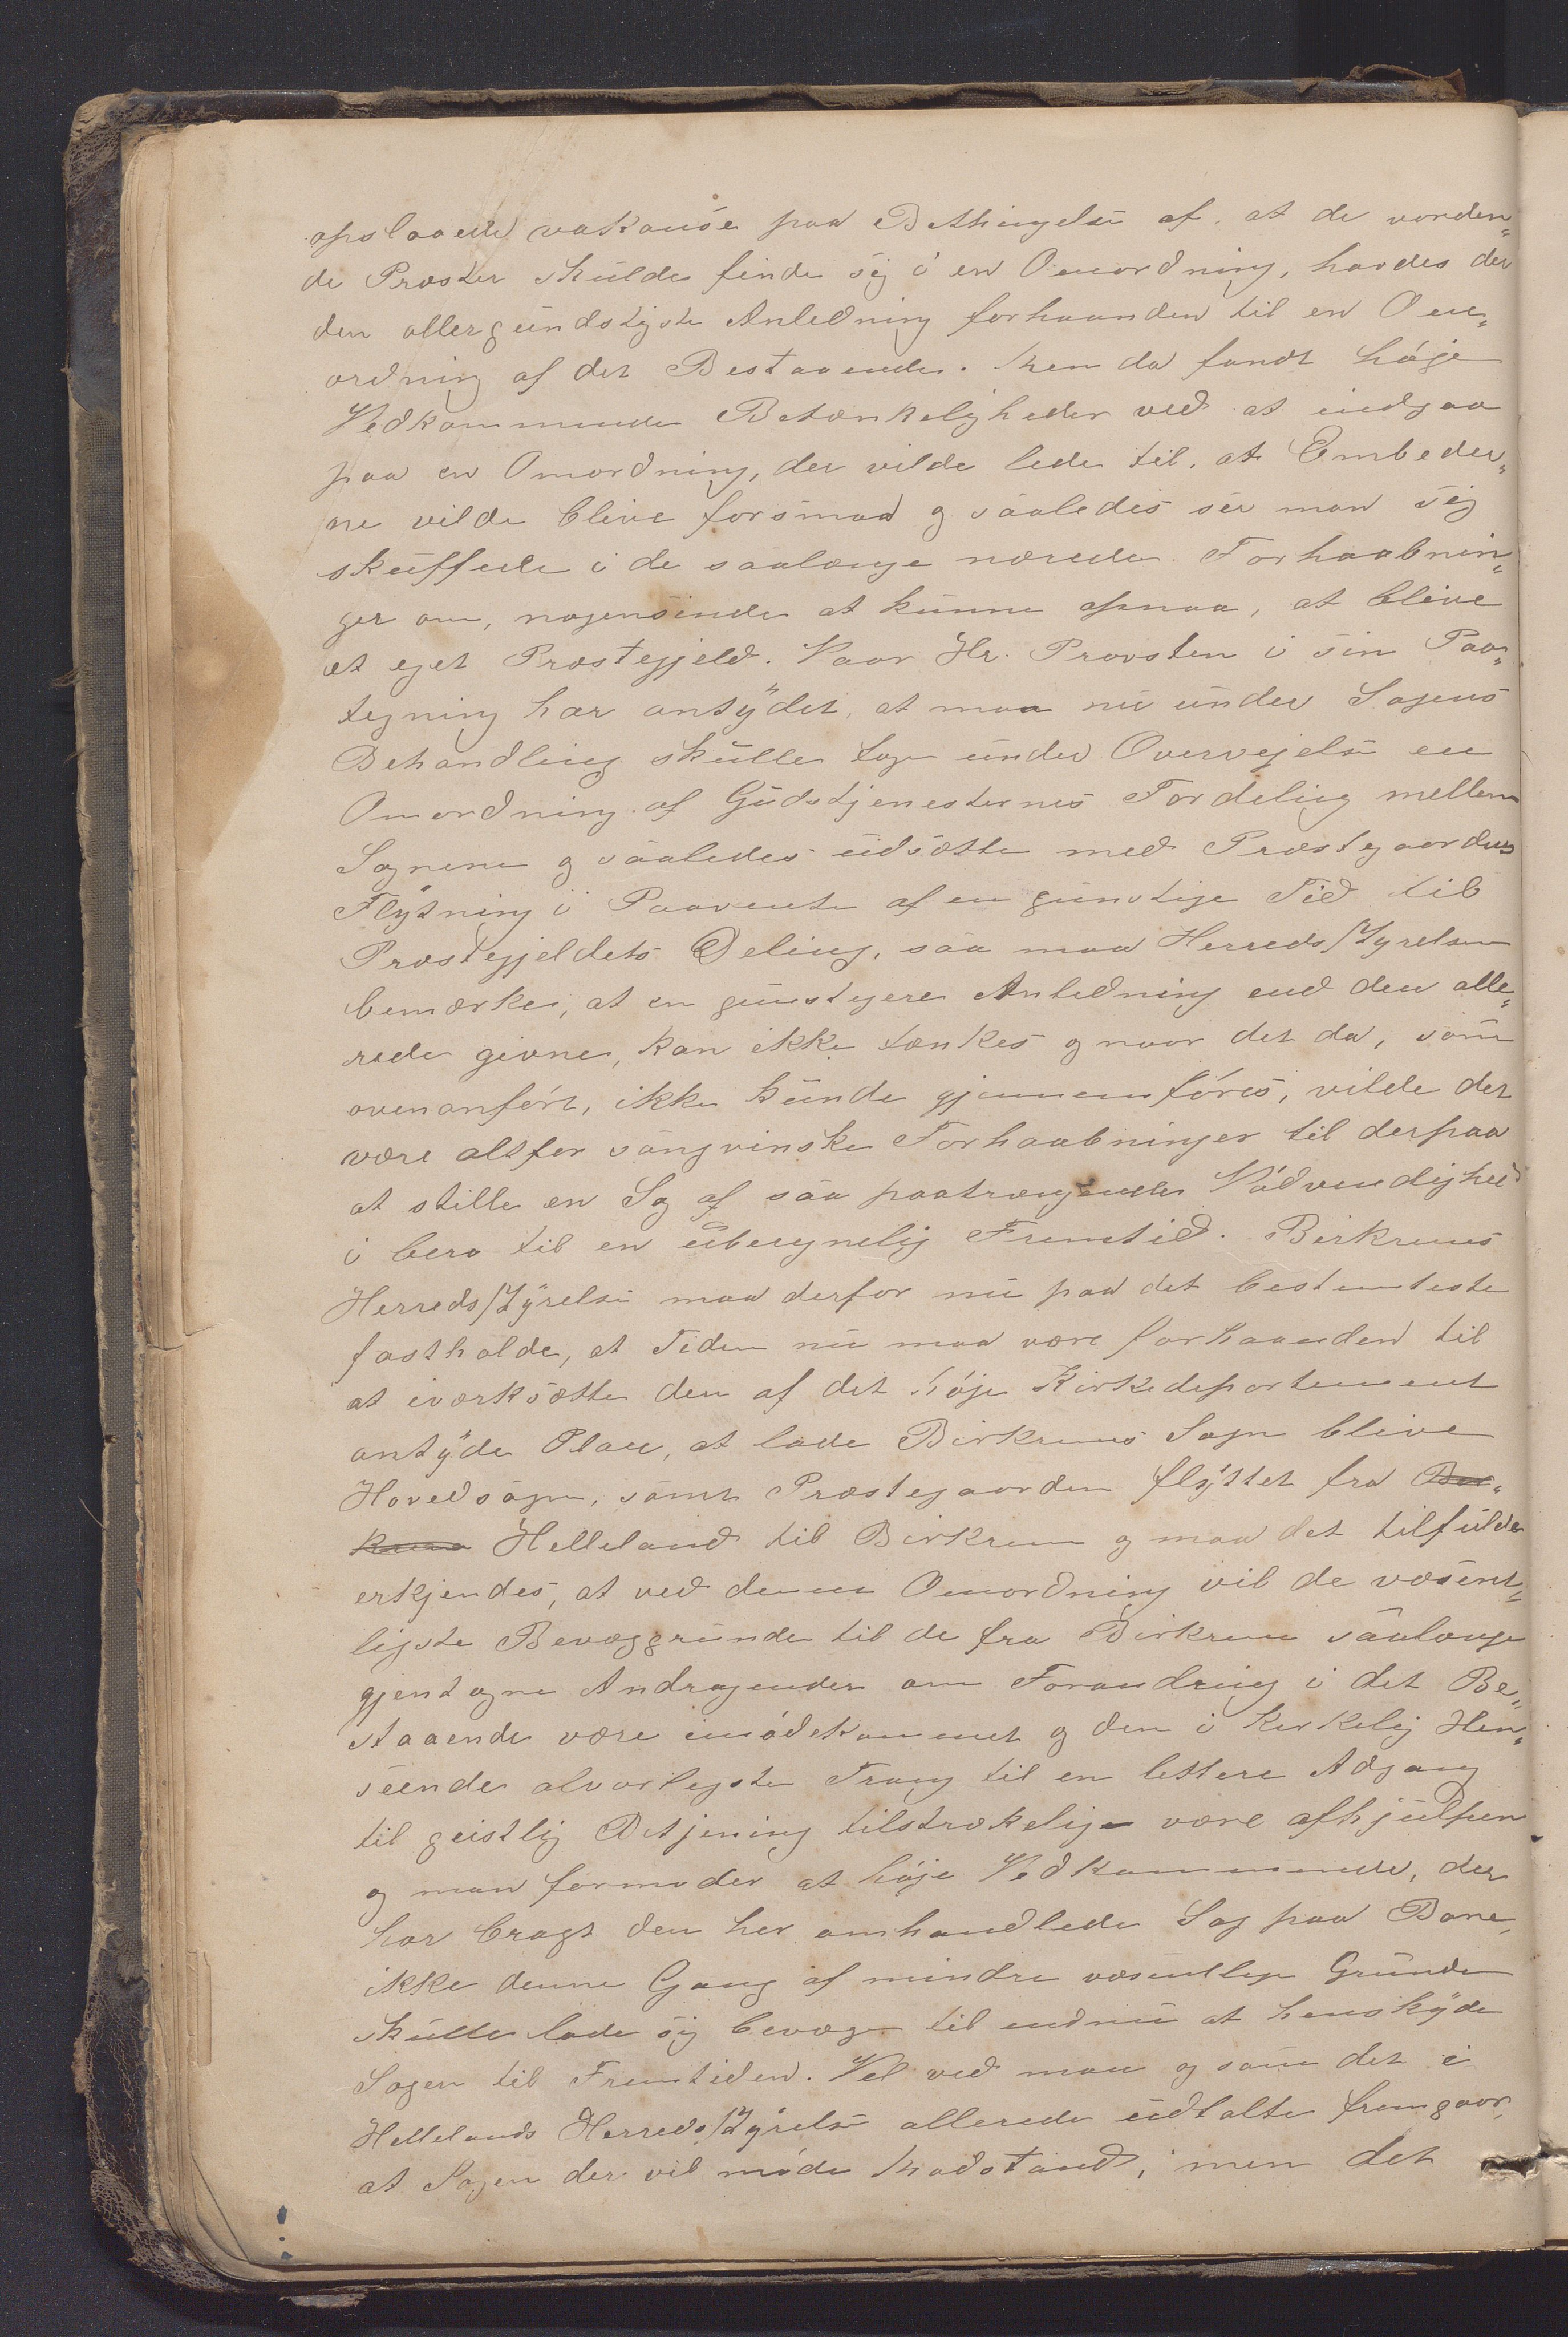 opslaaede vakanse paa Bethingelse af, at de vorden„
de Præster skulde finde sig i en Omordning, havdes der
den allergundstigste Anledning forhaanden til en Om„
ordning af det Bestaaende. Men da fandt høje
Vedkommende Betænkeligheder ved at indgaa
paa en Omordning, der vilde lede til, at Embeder„
ne vilde blive forsmaa og saaledes ser man sig
skuffede i de saalænge nærede Forhaabnin„
ger om, nogensinde at kunne opnaa, at blive
et eget Præstegjeld. Naar Hr. Provsten i sin Paa„
tegning har antydet, at man nu under Sagens
Behandling skulle tage under Overvejelse en
Omordning af Gudstjenesternes Fordeling mellem
Sognene og saaledes udsætte med Præstegaardens
Flytning i Paavente af en gunstige Tid til
Præstegjeldets Deling, saa maa Herredsstyrelsen
bemærke, at en gunstigere Anledning end den alle„
rede givne, kan ikke tænkes og naar det da, som
ovenanført, ikke kunde gjennemføres, vilde det
være altfor sangvinske Forhaabninger til derpaa
at stille en Sag af saa paatrængende Nødvendighed
i bero til en uberegnelig Fremtid. Birkrems
Herredsstyrelse maa derfor nu paa det bestemteste
fastholde, at Tiden nu maa være forhaanden til
at iværksætte den af det høje Kirkedepartement
antyde Plan, at lade Birkrems Sogn blive
Hovedsogn, samt Præstegaarden flyttet fra
Helleland til Birkrem og maa det tilfulde
erkjendes, at ved denne Omordning vil de væsent„
ligste Bevæggrunde til de fra Birkrem saalænge
gjentagne Andragender om Forandring i det Be„
staaende være imødekommet og den i kirkelig Hen„
seende alvorligste Trang til en lettere Adgang
til geistlig Betjening tilstrækelige være afhjulpen
og man formoder at høje Vedkommende, der
har bragt den her omhandlede Sag paa Bane,
ikke denne Gang af mindre væsentlige Grunde
skulle lade sig bevæge til endnu at henskyde
Sagen til Fremtiden. Vel ved man og som det i
Hellelands Herredsstyrelse allerede udtalte fremgaar,
at Sagen der vil møde Modstand, men det